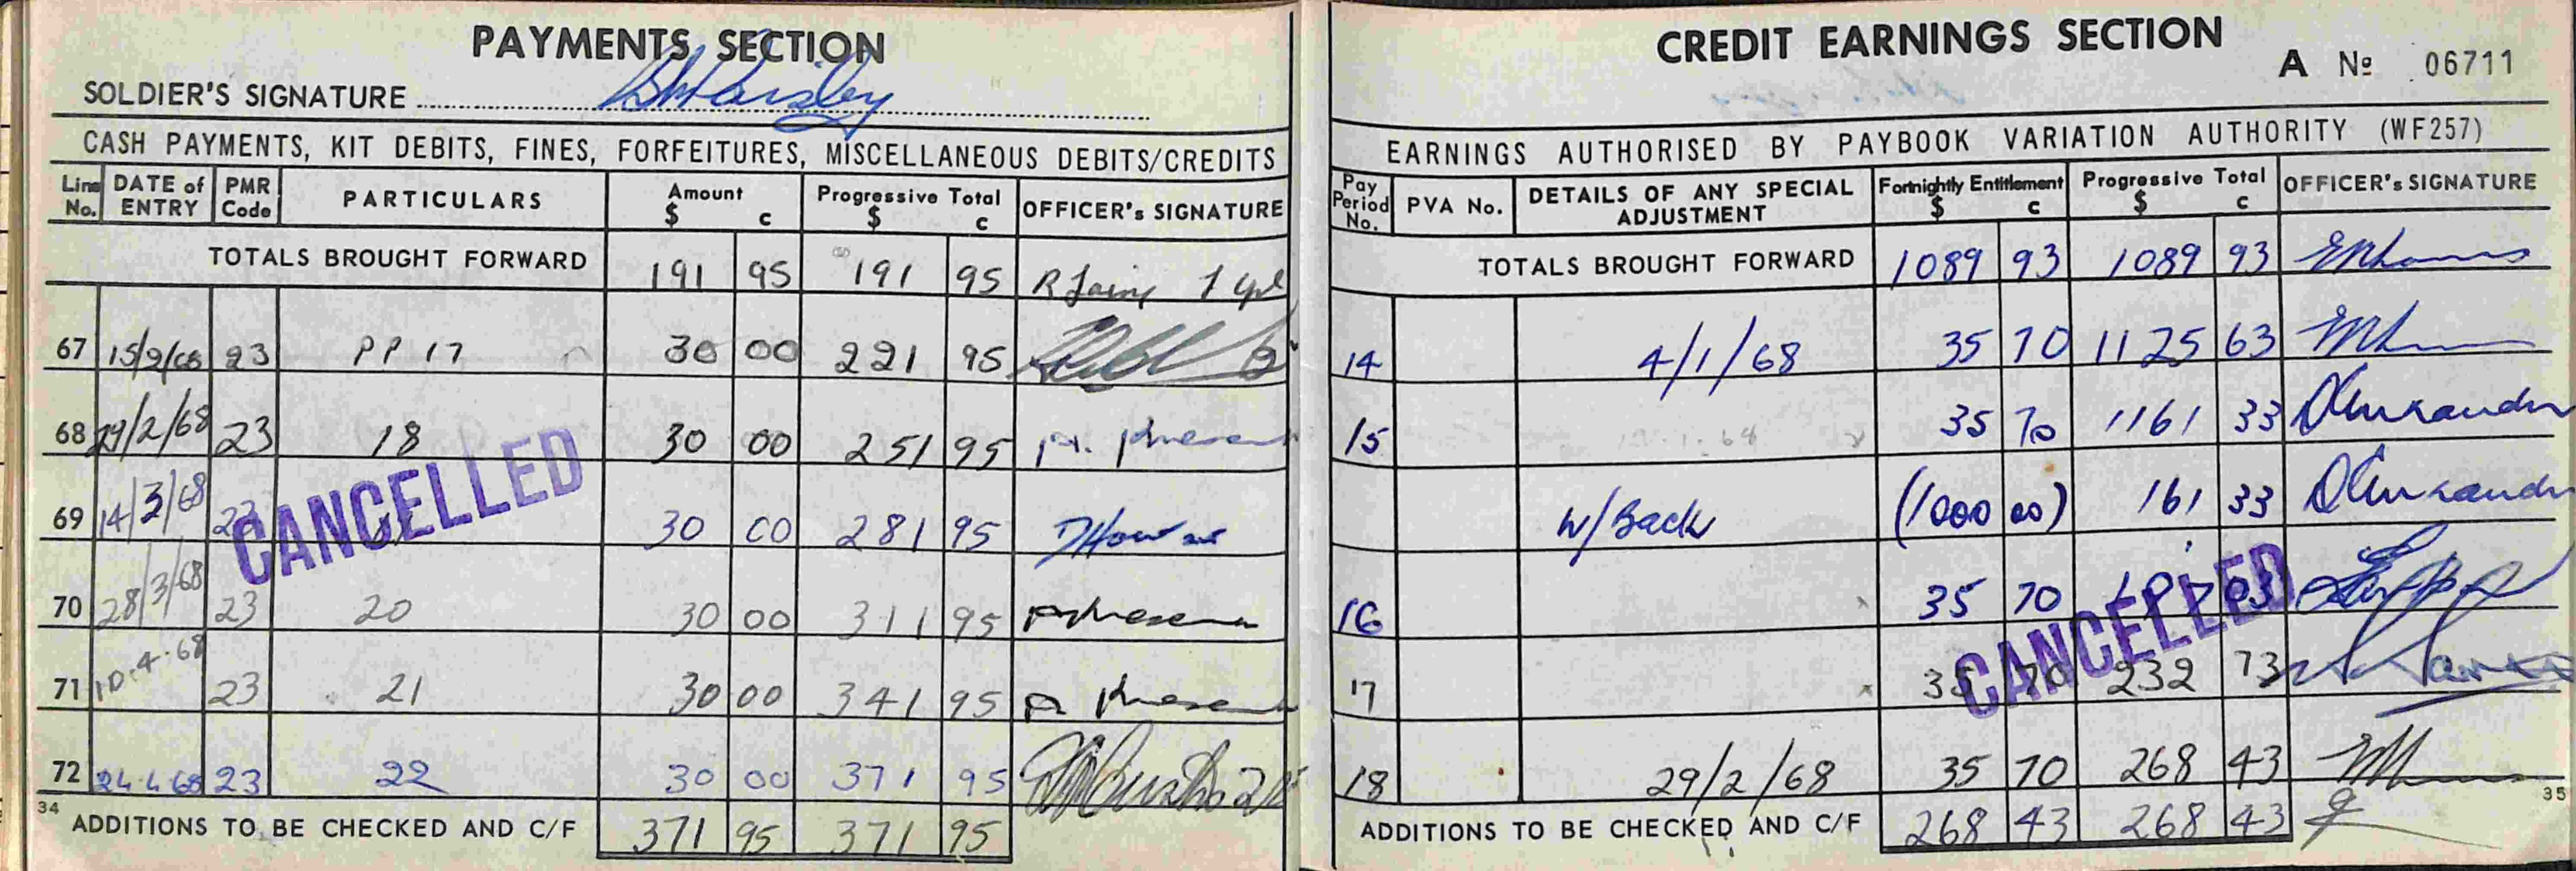 PAYMENTS SECTION
SOLDIER'S SIGNATURE
CASH PAYMENTS, KIT DEBITS, FINES, FORFEITURES, MISCELLANEOUS DEBITS/CREDITS
Line No. DATE of ENTRY PMR Code PARTICULARS Amount $ c Progressive Total $ c OFFICER's SIGNATURE
TOTALS BROUGHT FORWARD 191 95 191 95
67 15/2/68 23 PP 17 30 00 221 95
68 29/2/68 23 18 30 00 251 95
69 14/3/68 23 30 00 281 95
CANCELLED
70 28/3/68 23 20 30 00 311 95
71 10.4.68 23 21 30 00 341 95
72 24.4.68 23 22 30 00 371 95
34 ADDITIONS TO BE CHECKED AND C/F 371 95 371 95
CREDIT EARNINGS SECTION
A No 06711
EARNINGS AUTHORISED BY PAYBOOK VARIATION AUTHORITY (WF257)
Pay Period No. PVA No. DETAILS OF ANY SPECIAL ADJUSTMENT Fortnightly Entitlement $ c Progressive Total $ c OFFICER's SIGNATURE
TOTALS BROUGHT FORWARD 1089 93 1089 93
14 4/1/68 35 70 1125 63
15 35 70 1161 33
W/Back (1000 00) 161 33
16 35 70 197 03
CANCELLED
17 35 70 232 73
18 29/2/68 35 70 268 43
ADDITIONS TO BE CHECKED AND C/F 268 43 268 43
35